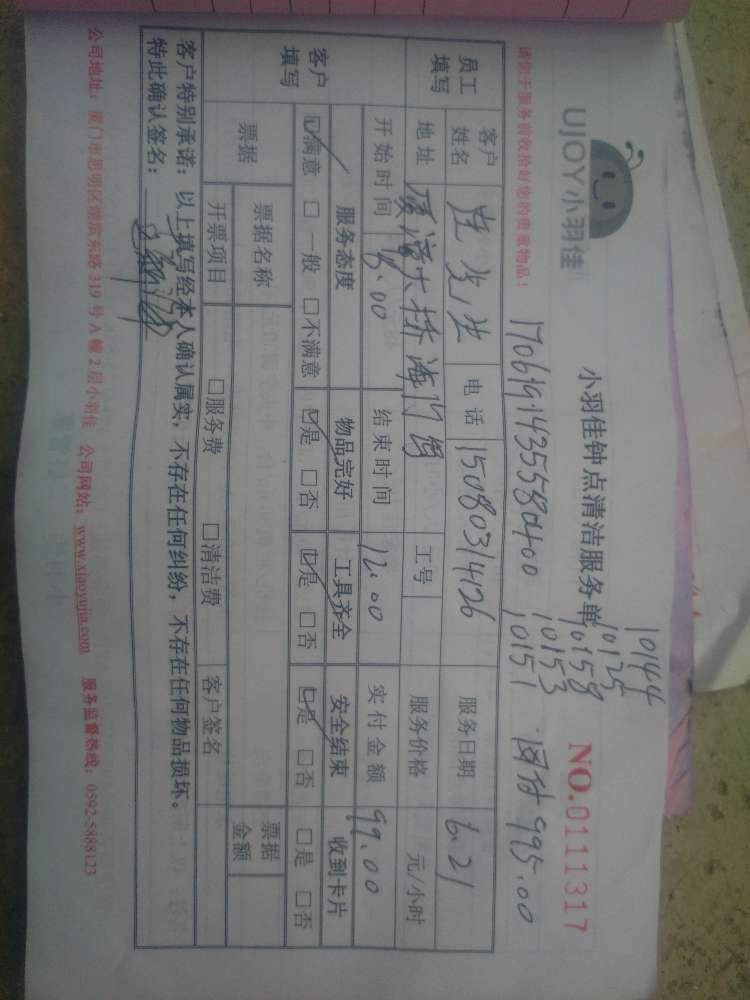 UJOY小羽佳
小羽佳钟点清洁服务单
10144
10125
10158
10153
10151
NO.0111317
请您于服务前收拾好您的贵重物品！
995.00
员工填写
客户姓名
电话 15080314126
服务日期 6.21
地址
工号
服务价格 元/小时
开始时间 8:00
结束时间 12:00
实付金额 99.00
客户填写
服务态度 物品完好 工具齐全 安全结束 收到卡片
☑满意 □一般 □不满意 ☑是 □否 ☑是 □否 ☑是 □否 □是 □否
票据
票据名称
票据金额
开票项目 □服务费 □清洁费 客户签名
客户特别承诺：以上填写经本人确认属实，不存在任何纠纷，不存在任何物品损坏。
特此确认签名：
公司地址：厦门市思明区湖滨东路 319 号 A 幢 2 层小羽佳 公司网站：www.xiaoyujia.com 服务监督热线：0592-5888123